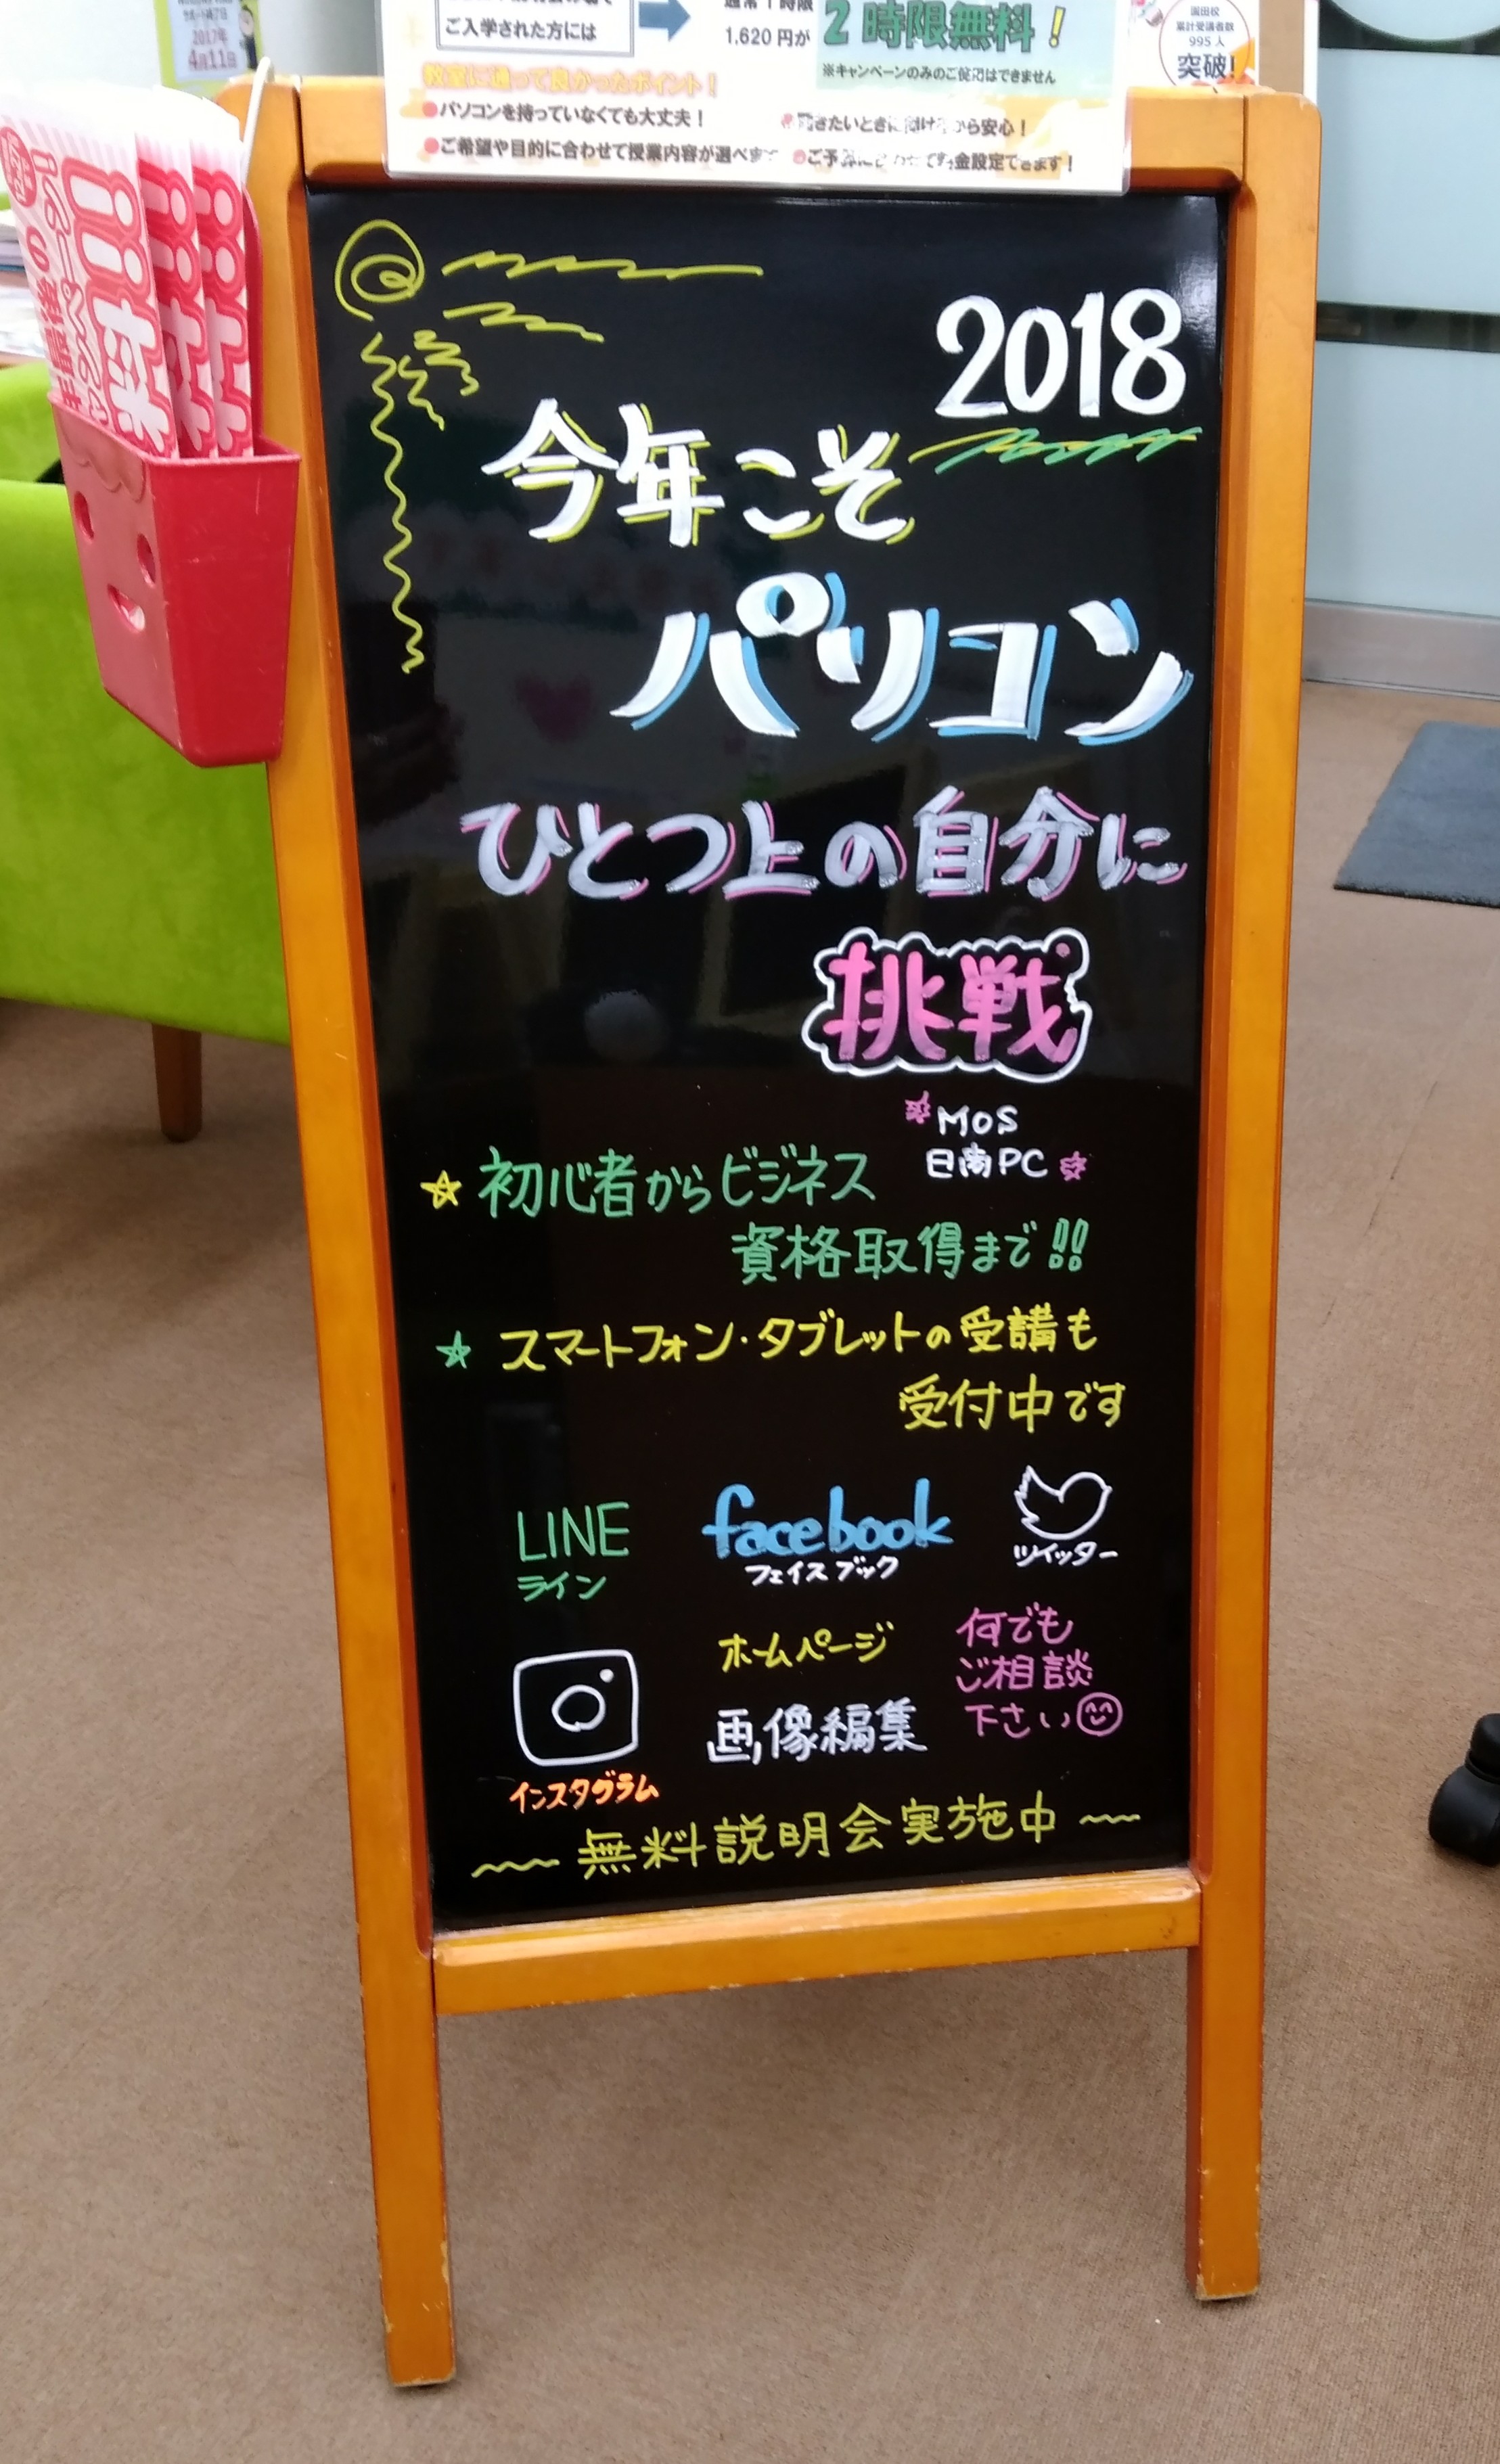 サポート終了日
2017年
4月11日
ご入学された方には
通常1時限
1,620円が
2時限無料！
※キャンペーンのみのご使用はできません
園田校
累計受講者数
995人
突破！
教室に通って良かったポイント！
●パソコンを持っていなくても大丈夫！
●ご希望や目的に合わせて授業内容が選べます
から安心！
●ご予算に合わせて料金設定できます！
2018
今年こそ
パソコン
ひとつ上の自分に
挑戦
MOS
日商PC
☆初心者からビジネス
資格取得まで!!
☆スマートフォン・タブレットの受講も
受付中です
LINE
ライン
facebook
フェイスブック
ツイッター
インスタグラム
ホームページ
画像編集
何でも
ご相談
下さい
〜無料説明会実施中〜